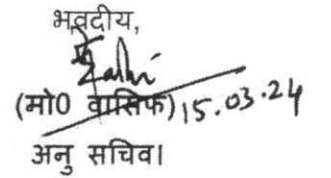 भवदीय,
(मो0 वासिफ) 15.03.24
अनु सचिव।